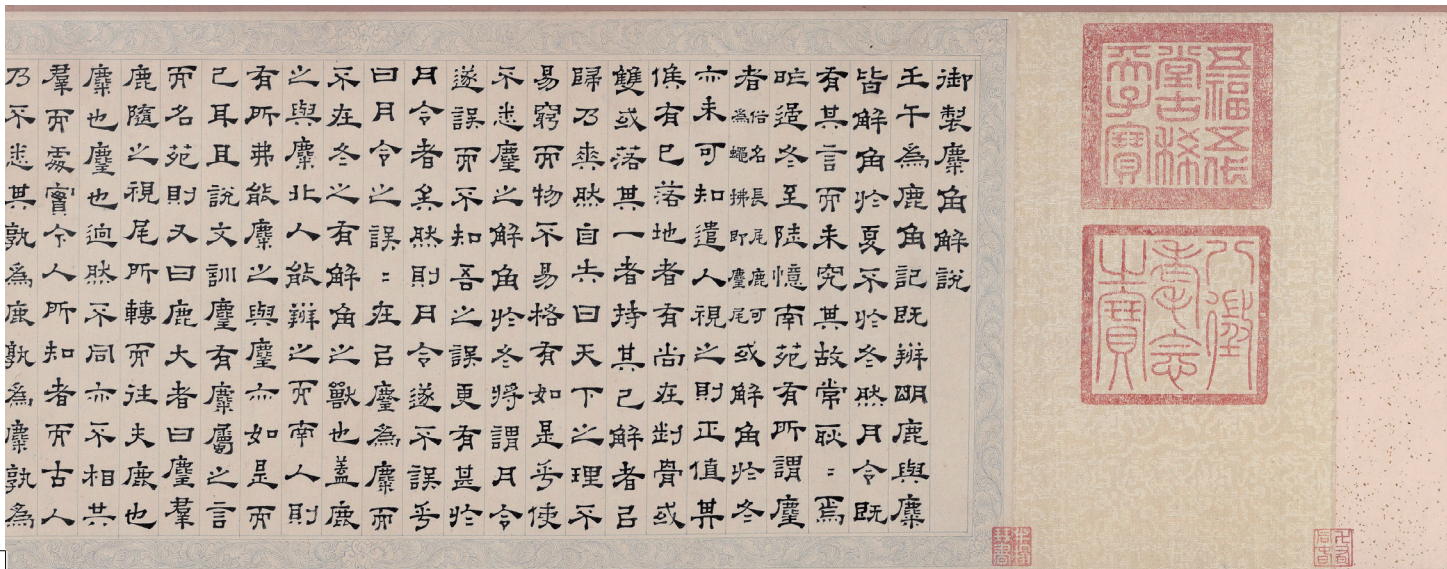 五福五代
堂古稀
天子寶
八徵
耄念
之寶
御製麋角解說
壬午為鹿角記既辨明鹿與麋
皆解角於夏不於冬然月令既
有其言而未究其故常耿〻焉
昨過冬至陡憶南苑有所謂麈
者俗名長尾鹿可為蠅拂即麈尾或解角於冬
亦未可知遣人視之則正值其
候有已落地者有尚在骨或
雙或落其一者持其已解者以
歸乃爽然自失曰天下之理不
易窮而物不易格有如是乎使
不悉麈之解角於冬將謂月令
遂誤而不知吾之誤更有甚於
月令者矣然則月令遂不誤乎
曰月令之誤〻在以麈為麋而
不在冬之有解角之獸也蓋鹿
之與麋北人能辨之而南人則
有所弗能麋之與麈亦如是而
已耳且說文訓麈有麋屬之言
而名苑則又曰鹿大者曰麈羣
鹿隨之視尾所轉而往夫鹿也
麋也麈也逈然不同亦不相共
羣而處實今人所知者而古人
乃不悉其孰為鹿孰為麋孰為